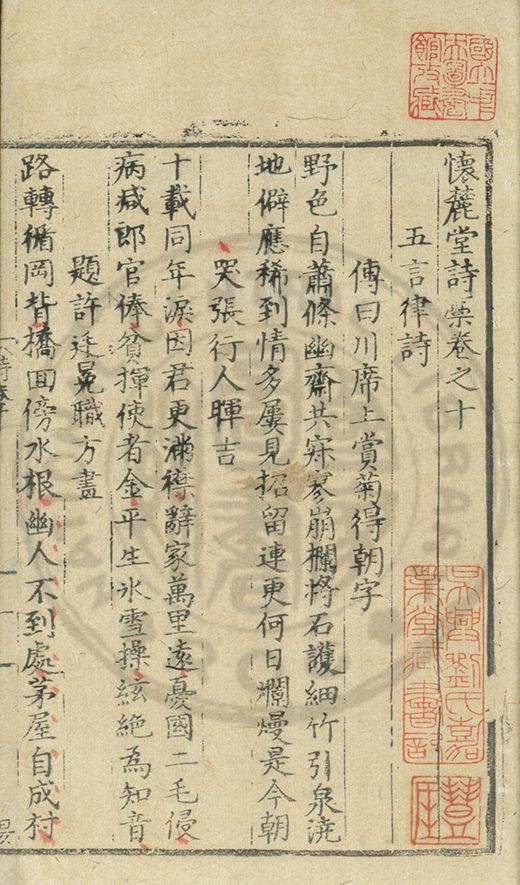 懷麓堂詩藁卷之十
五言律詩
傅曰川席上賞菊得朝字
野色自蕭條幽齋共寂寥崩欄將石護細竹引泉澆
地僻應稀到情多屢見招留連更何日爛熳是今朝
哭張行人暉吉
十載同年淚因君更滿襟辭家萬里遠憂國二毛侵
病減郎官俸貧揮使者金平生氷雪操絃絶為知音
題許廷冕職方畫
路轉循岡背橋回傍水根幽人不到處茅屋自成村
國立中央圖書館攷藏
吳興劉氏嘉業堂藏書記